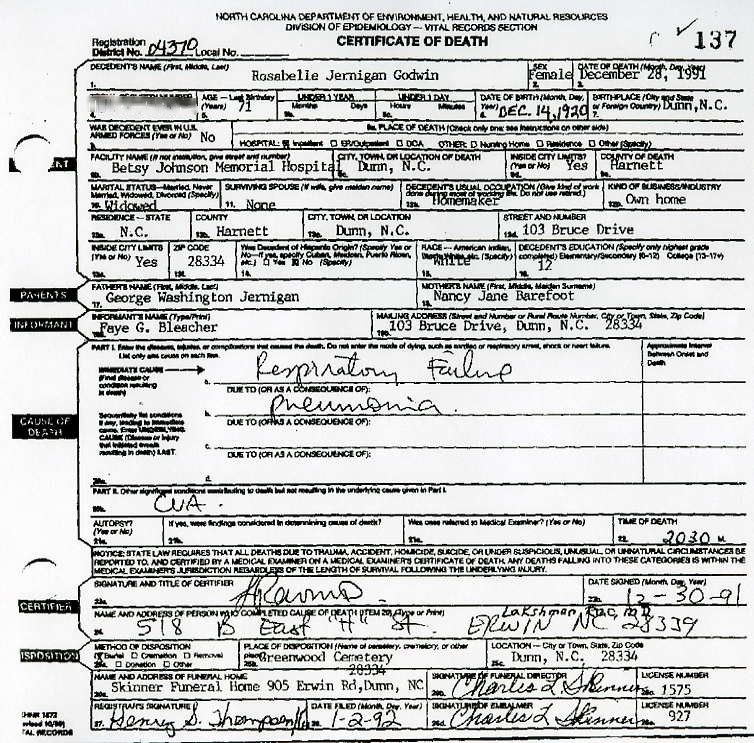 NORTH CAROLINA DEPARTMENT OF ENVIRONMENT, HEALTH, AND NATURAL RESOURCES
DIVISION OF EPIDEMIOLOGY — VITAL RECORDS SECTION
CERTIFICATE OF DEATH
137
Registration District No. 04370 Local No.
DECEDENT'S NAME (First, Middle, Last) SEX DATE OF DEATH (Month, Day, Year)
1. Rosabelle Jernigan Godwin 2. Female 3. December 28, 1991
AGE — Last Birthday (Years) UNDER 1 YEAR UNDER 1 DAY DATE OF BIRTH (Month, Day, Year) BIRTHPLACE (City and State or Foreign Country)
4. 5. 71 Months Days Hours Minutes 6. DEC. 14, 1920 7. Dunn, N.C.
WAS DECEDENT EVER IN U.S. ARMED FORCES? (Yes or No) No
9a. PLACE OF DEATH (Check only one: see instructions on other side)
HOSPITAL: Inpatient ER/Outpatient DOA OTHER: Nursing Home Residence Other (Specify)
FACILITY NAME (If not institution, give street and number) CITY, TOWN, OR LOCATION OF DEATH INSIDE CITY LIMITS? (Yes or No) COUNTY OF DEATH
9b. Betsy Johnson Memorial Hospital Dunn, N.C. Yes Harnett
MARITAL STATUS—Married, Never Married, Widowed, Divorced (Specify) SURVIVING SPOUSE (If wife, give maiden name) DECEDENT'S USUAL OCCUPATION (Give kind of work done during most of working life. Do not use retired.) KIND OF BUSINESS/INDUSTRY
10. Widowed 11. None 12a. Homemaker 12b. Own home
RESIDENCE — STATE COUNTY CITY, TOWN, OR LOCATION STREET AND NUMBER
13a. N.C. 13b. Harnett 13c. Dunn, N.C. 13d. 103 Bruce Drive
INSIDE CITY LIMITS (Yes or No) ZIP CODE Was Decedent of Hispanic Origin? (Specify Yes or No—If yes, specify Cuban, Mexican, Puerto Rican, etc.) Yes No (Specify) RACE — American Indian, Black, White, etc. (Specify) DECEDENT'S EDUCATION (Specify only highest grade completed) Elementary/Secondary (0-12) College (13-17+)
13e. Yes 13f. 28334 14. 15. White 16. 12
PARENTS
FATHER'S NAME (First, Middle, Last) MOTHER'S NAME (First, Middle, Maiden Surname)
17. George Washington Jernigan Nancy Jane Barefoot
INFORMANT
INFORMANT'S NAME (Type/Print) MAILING ADDRESS (Street and Number or Rural Route Number, City or Town, State, Zip Code)
Faye G. Bleacher 103 Bruce Drive, Dunn, N.C. 28334
PART I. Enter the diseases, injuries, or complications that caused the death. Do not enter the mode of dying, such as cardiac or respiratory arrest, shock or heart failure. List only one cause on each line.
Approximate Interval Between Onset and Death
IMMEDIATE CAUSE (Final disease or condition resulting in death)
a. Respiratory Failure
DUE TO (OR AS A CONSEQUENCE OF):
Pneumonia.
CAUSE OF DEATH
Sequentially list conditions if any, leading to immediate cause. Enter UNDERLYING CAUSE (Disease or injury that initiated events resulting in death) LAST.
DUE TO (OR AS A CONSEQUENCE OF):
c.
DUE TO (OR AS A CONSEQUENCE OF):
20a. d.
PART II. Other significant conditions contributing to death but not resulting in the underlying cause given in Part I.
20b. CVA.
AUTOPSY? (Yes or No) If yes, were findings considered in determining cause of death? Was case referred to Medical Examiner? (Yes or No) TIME OF DEATH
21a. 21b. 21c. 22. 2030 M
NOTICE: STATE LAW REQUIRES THAT ALL DEATHS DUE TO TRAUMA, ACCIDENT, HOMICIDE, SUICIDE, OR UNDER SUSPICIOUS, UNUSUAL, OR UNNATURAL CIRCUMSTANCES BE REPORTED TO, AND CERTIFIED BY A MEDICAL EXAMINER ON A MEDICAL EXAMINER'S CERTIFICATE OF DEATH. ANY DEATHS FALLING INTO THESE CATEGORIES IS WITHIN THE MEDICAL EXAMINER'S JURISDICTION REGARDLESS OF THE LENGTH OF SURVIVAL FOLLOWING THE UNDERLYING INJURY.
CERTIFIER
SIGNATURE AND TITLE OF CERTIFIER DATE SIGNED (Month, Day, Year)
23a. 23b. 12-30-91
NAME AND ADDRESS OF PERSON WHO COMPLETED CAUSE OF DEATH (ITEM 20) (Type or Print) Lakshman Rao, M.D.
24. 518 B East "H" St ERWIN NC 28339
DISPOSITION
METHOD OF DISPOSITION PLACE OF DISPOSITION (Name of cemetery, crematory, or other place) LOCATION — City or Town, State, Zip Code
Burial Cremation Removal Donation Other 25b. Greenwood Cemetery 25c. Dunn, N.C. 28334
NAME AND ADDRESS OF FUNERAL HOME SIGNATURE OF FUNERAL DIRECTOR LICENSE NUMBER
26a. Skinner Funeral Home 905 Erwin Rd, Dunn, NC 28334 Charles L Skinner 1575
REGISTRAR'S SIGNATURE DATE FILED (Month, Day, Year) SIGNATURE OF EMBALMER LICENSE NUMBER
27. Henry S. Thompson 28. 1-2-92 26d. Charles L Skinner 927
TAL RECORDS